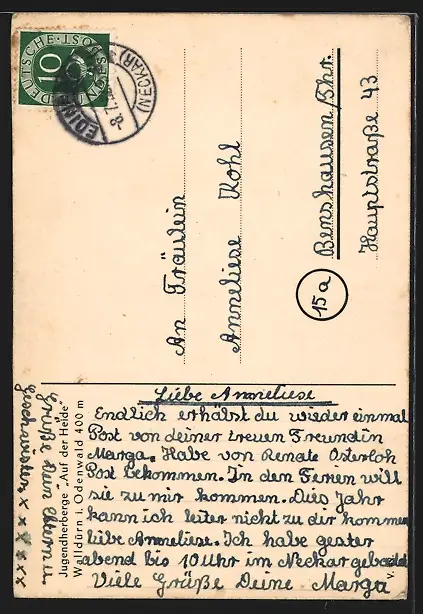 DEUTSCHE·POST
10
EDINGEN
(NECKAR)
An Fräulein
Anneliese Kohl
15a
Benshausen/Thr.
Hauptstraße 43
Jugendherberge "Auf der Heide"
Walldürn i. Odenwald 400 m
Liebe Anneliese
Endlich erhälst du wieder einmal
Post von deiner treuen Freundin
Marga. Habe von Renate Osterloh
Post bekommen. In den Ferien will
sie zu mir kommen. Dies Jahr
kann ich leiter nicht zu dir kommen
liebe Anneliese. Ich habe gester
abend bis 10 Uhr im Neckar gebadet
Viele Grüße Deine Marga
Grüße Deine Eltern u.
Geschwister x x x x x x